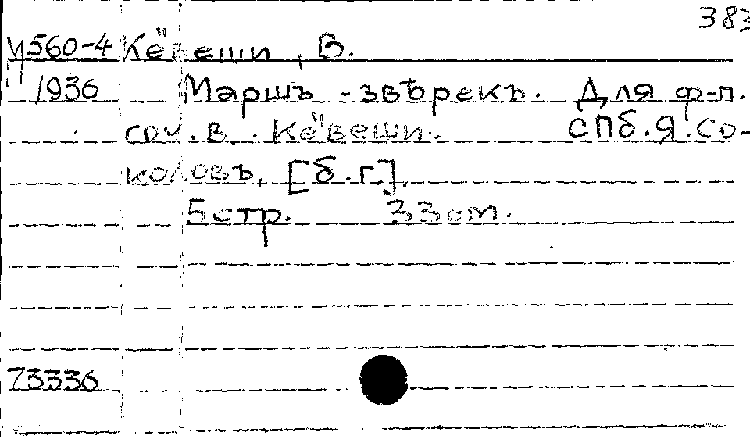 383
И560-4 Кёвеши, В.
1936 Маршъ-звѣрекъ. Для ф-п.
соч. В. Кёвеши. СПб. Я. Со-
коловъ, [б.г.].
5 стр. 33 cm.
73336